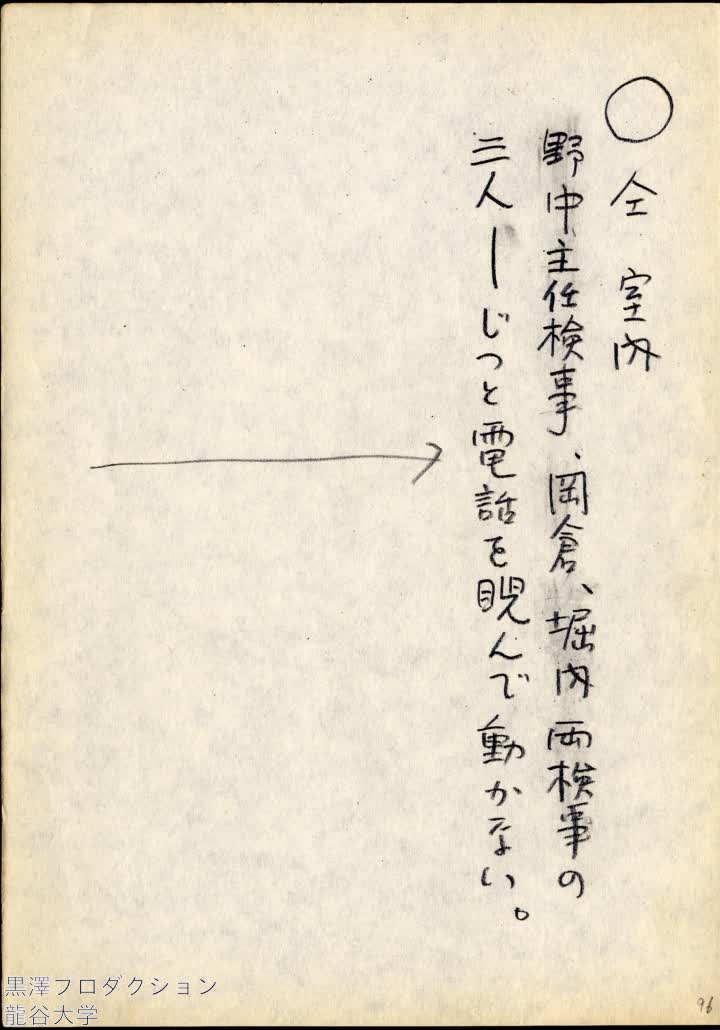 ○仝 室内
野中主任検事、岡倉、堀内両検事の
三人―じっと電話を睨んで動かない。
96
黒澤プロダクション
龍谷大学